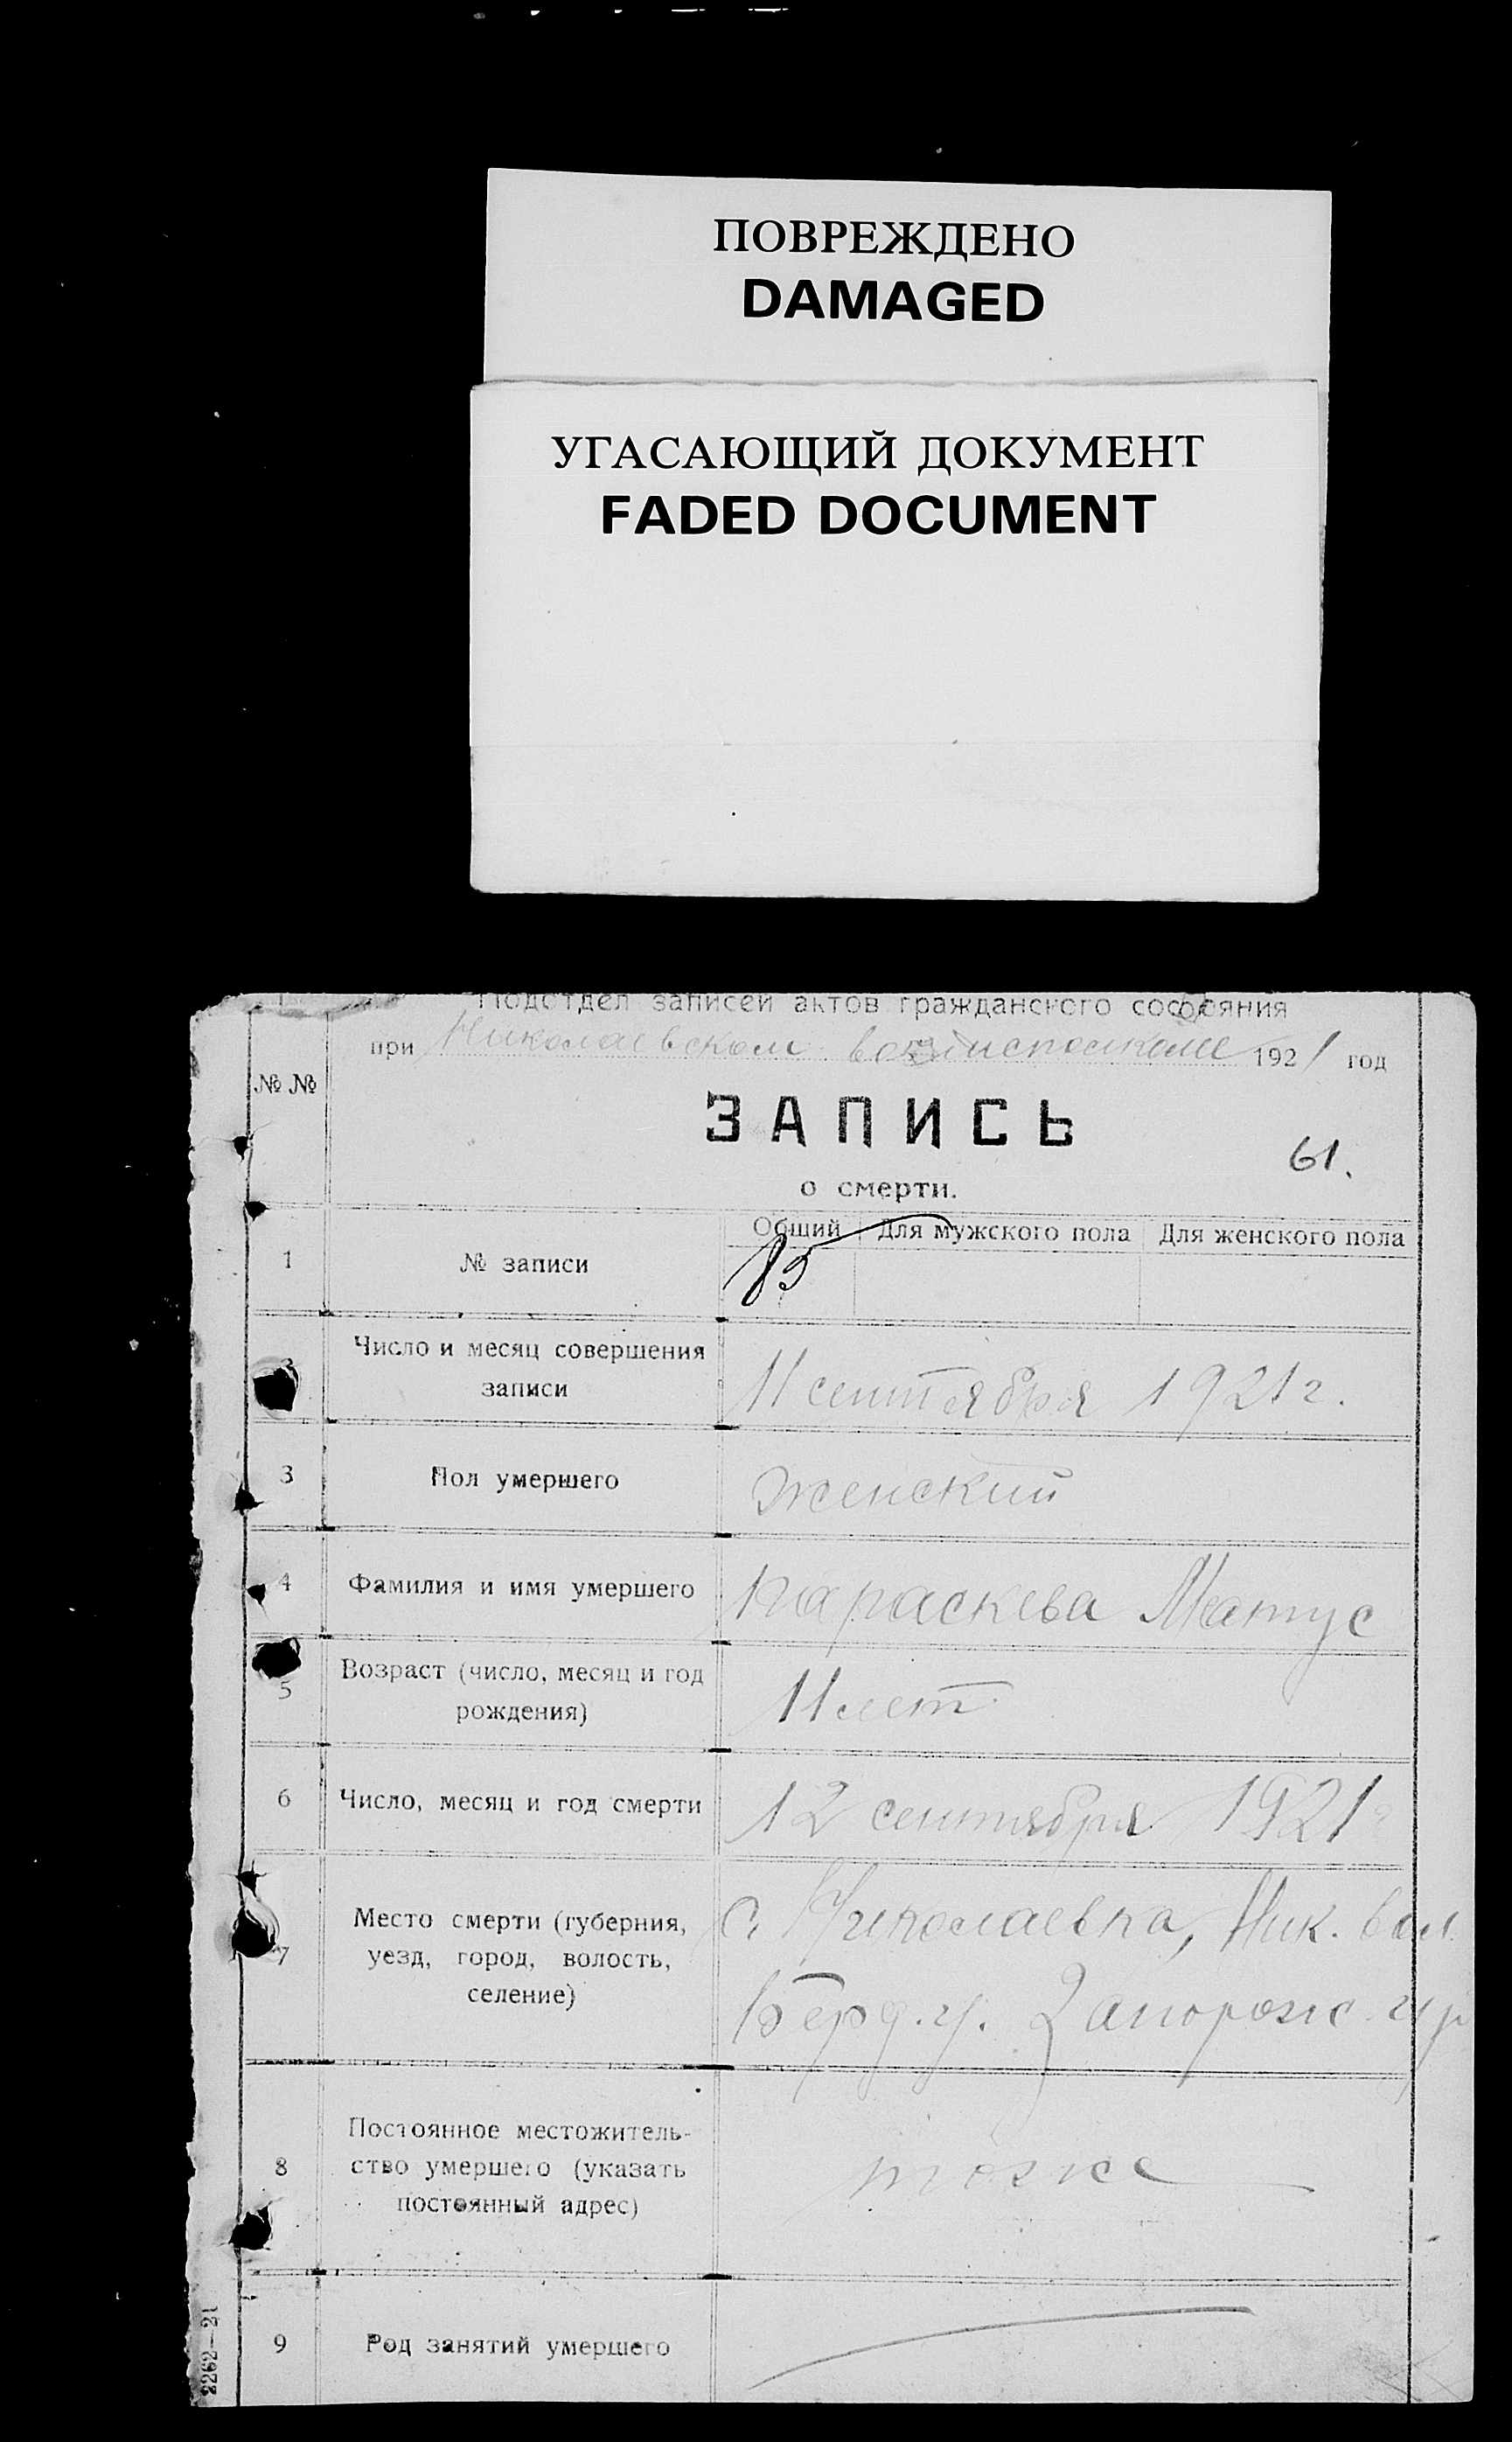 ПОВРЕЖДЕНО
DAMAGED
УГАСАЮЩИЙ ДОКУМЕНТ
FADED DOCUMENT
Подотдел записей актов гражданского состояния
при Николаевском 1921 год
№ №
ЗАПИСЬ
61.
о смерти.
Общий Для мужского пола Для женского пола
1 № записи 85
2 Число и месяц совершения
записи
11 сентября 1921 г.
3 Пол умершего женский
4 Фамилия и имя умершего Параскева Матус
5 Возраст (число, месяц и год
рождения)
11 лет
6 Число, месяц и год смерти 12 сентября 1921
7 Место смерти (губерния,
уезд, город, волость,
селение)
с. Николаевка, Ник. вол.
Берд. у. Запорож. гу
8 Постоянное местожитель-
ство умершего (указать
постоянный адрес)
тоже
9 Род занятий умершего
2262—21